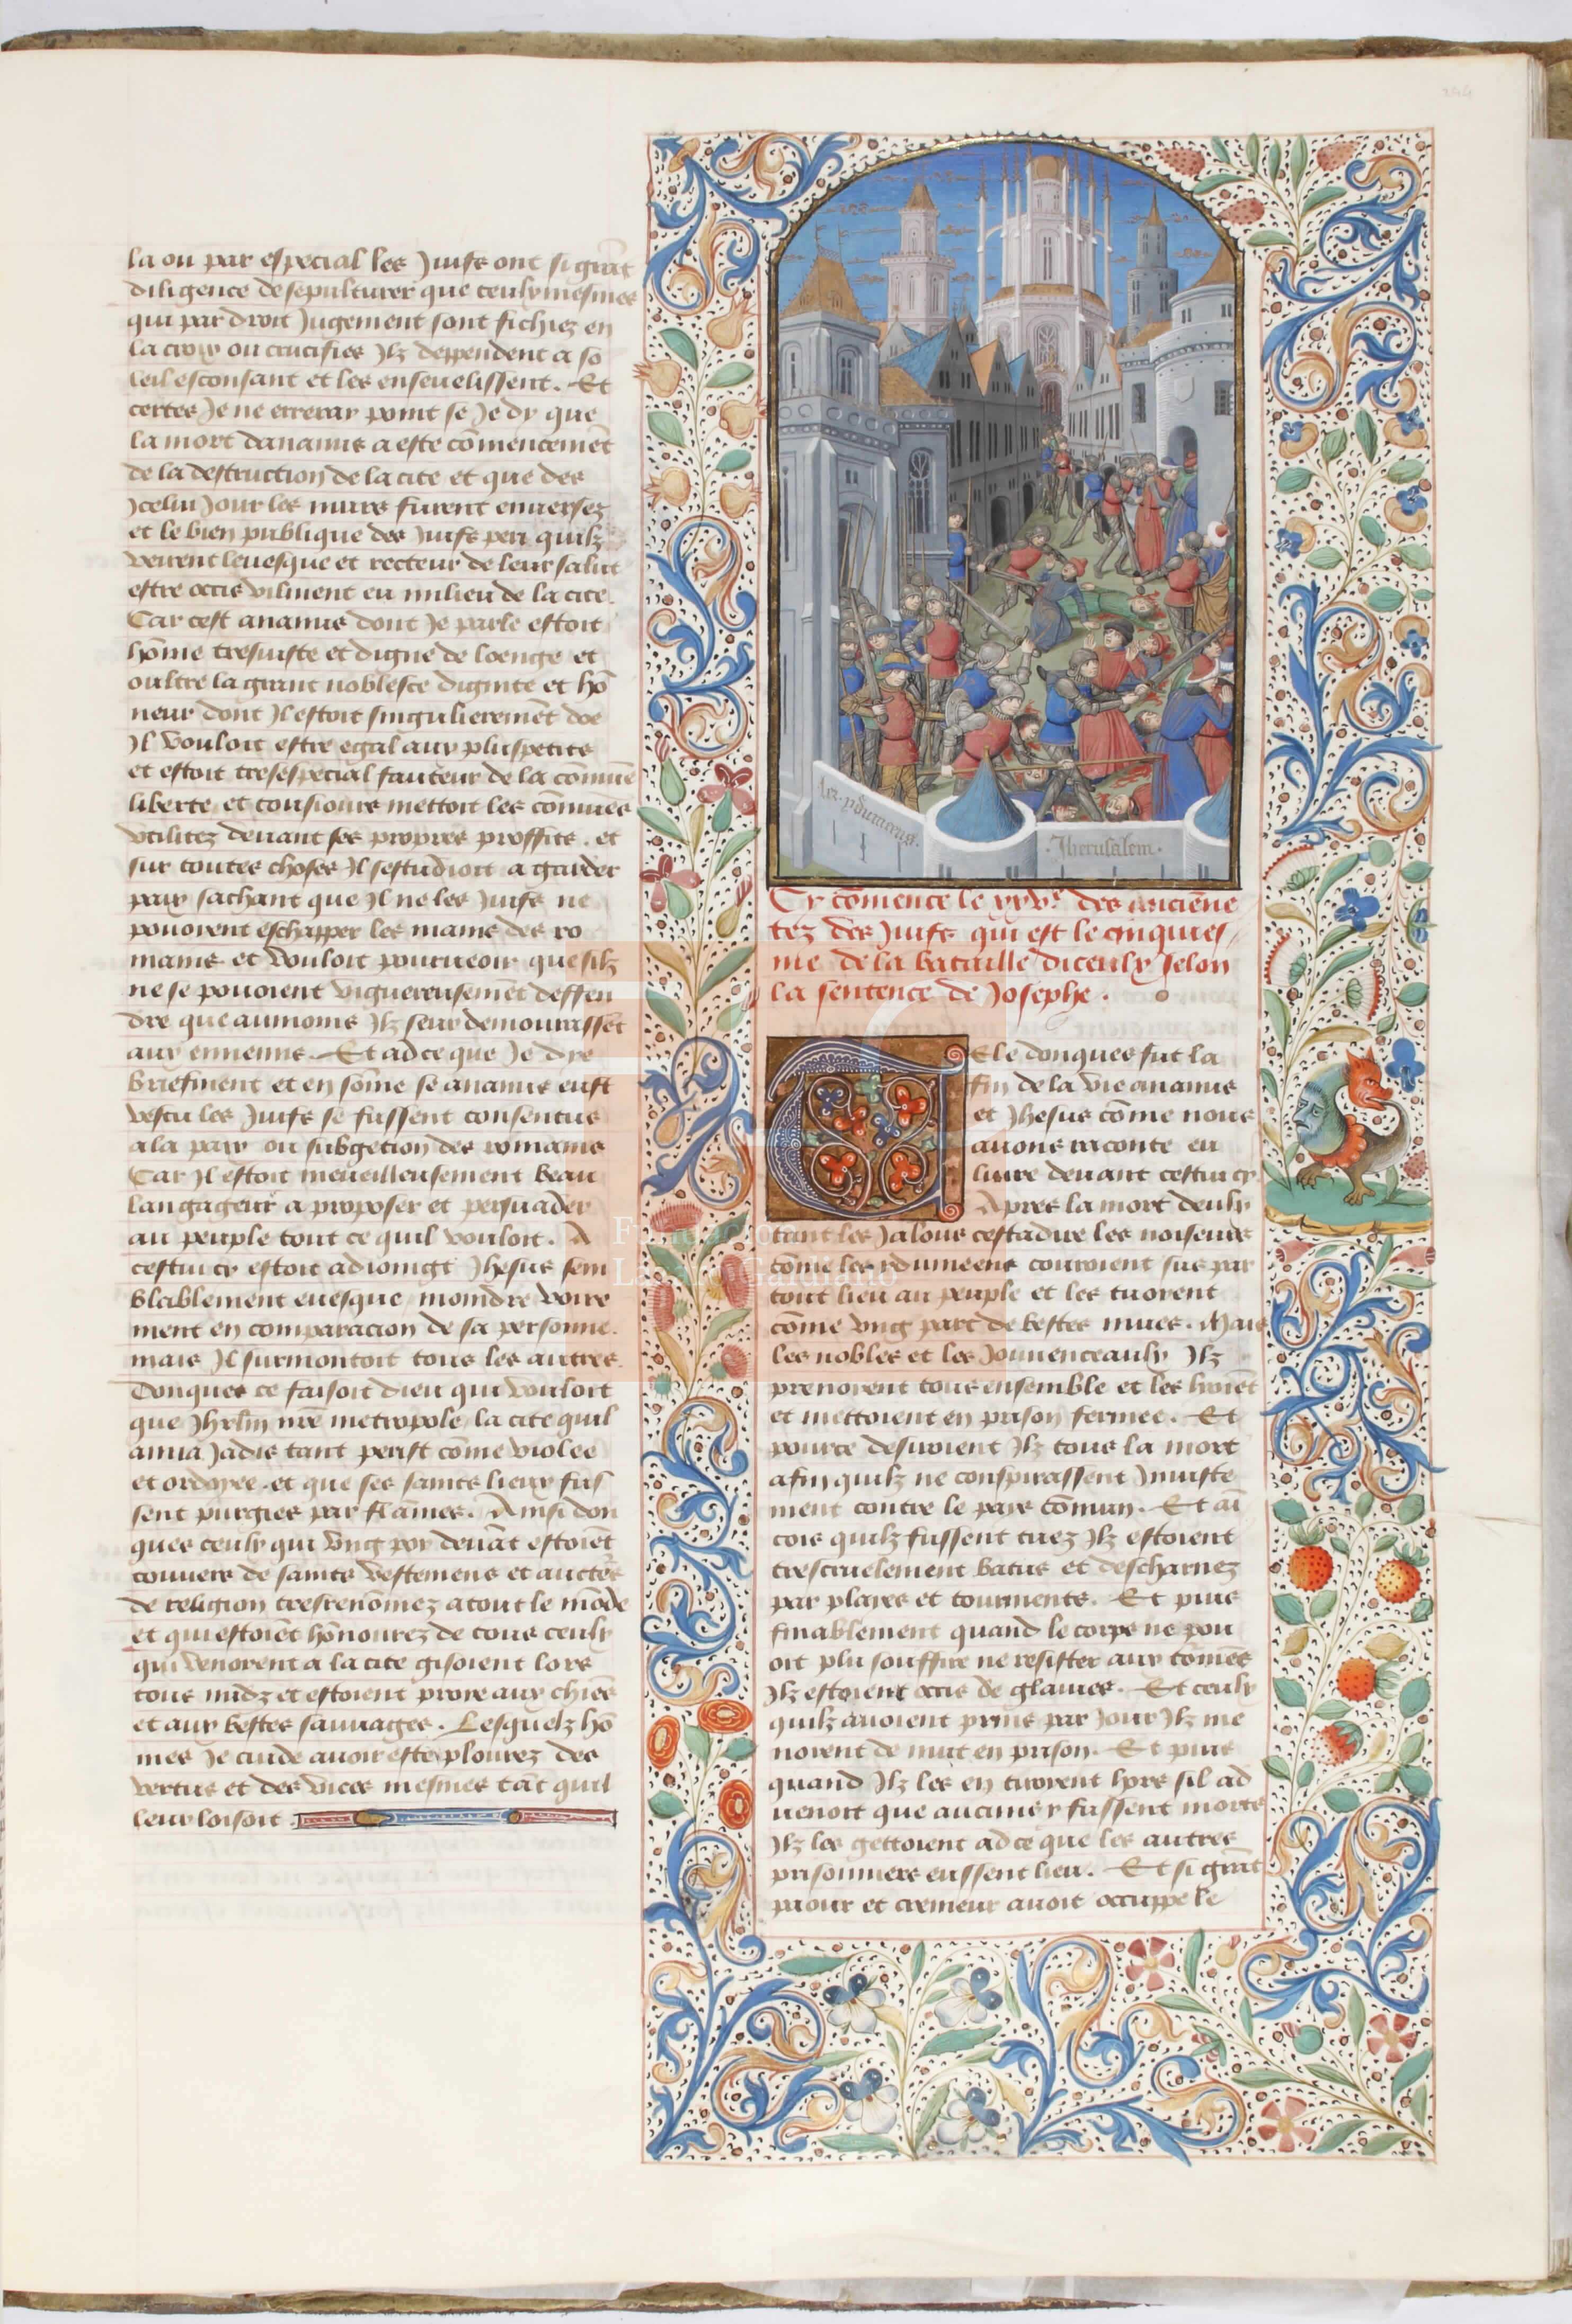 la ou par especial les Juifs ont si grāt
diligence de sepulturer que ceulx mesmes
qui par droit Jugement sont fichiez en
la croix ou crucifies Ilz deppendent a so
leil esconsant et les enseuelissent. Et
certes Je ne erreray point se Je dy que
la mort dananus a este cōmencemēt
de la destruction de la cite et que des
Icelui Jour les murs furent enuersez
et le bien publique des Juifs peri quilz
veirent leuesque et recteur de leur salut
estre occis vilment en milieu de la cite.
Car cest ananus dont Je parle estoit
hōme tresiuste et digne de loenge et
oultre la grant noblesce dignite et hō
neur dont Il estoit singulieremēt doe
Il vouloit estre egal aux plus petits
et estoit tresespecial fauteur de la cōmune
liberte et tousiours mettoit les cōmunes
vtilitez deuant ses propres proffits. et
sur toutes choses Il sestudioit a garder
paix sachant que Il ne les Juifs ne
pouoient eschapper les mains des ro
mains et vouloit pourueoir que silz
ne se pouoient viguereusemēt deffen
dre que aumoins Ilz seur demourassēt
aux ennemis. Et ad ce que Je dye
briefment et en sōme se ananus eust
vescu les Juifs se fussent consentus
a la paix ou subgetion des romains
Car Il estoit merueilleusement beau
langageur a proposer et persuader
au peuple tout ce quil vouloit. A
cestui cy estoit adioingt Jhesus sem
blablement euesque moindre voire
ment en comparacion de sa personne.
mais Il surmontoit tous les autres.
Donques ce faisoit dieu qui vouloit
que Jhrlm nrē metropole la cite quil
ama Jadis tant perist cōme violee
et ordoyee. et que ses saints lieux fus
sent purgies par flāmes. Ainsi don
ques ceulx qui vng poy deuāt estoiēt
couuers de saints vestemens et aucteurs
de religion tresrenōmez a tout le mōde
et qui estoiēt hōnourez de tous ceulx
qui venoient a la cite gisoient lors
tous nudz et estoient proye aux chiēs
et aux bestes sauuages. Lesquelz hō
mes Je cuide auoir este plourez des
vertus et des vices mesmes tāt quil
leur loisoit.
Les ydumeens.
Jherusalem.
Cy cōmence le xxvᵉ des anciēne
tez des Juifs qui est le cinquies
me de la bataille diceulx selon
la sentence de Josephe.
Tele donques fut la
fin de la vie ananus
et Jhesus cōme nous
auons raconte eu
liure deuant cestui cy
Apres la mort deulx
tant les Jalous cestadire les noiseurs
cōme les ydumeens couroient sus par
tout lieu au peuple et les tuoient
cōme vng parc de bestes mues. Mais
les nobles et les Jouuenceaulx Ilz
prenoient tous ensemble et les lioiēt
et mettoient en prison fermee. Et
pource desiroient Ilz tous la mort
afin quilz ne conspirassent Iniuste
ment contre le pays cōmun. Et ai
cois quilz fussent tuez Ilz estoient
trescruelement batus et descharnez
par playes et tourmens. Et puis
finablement quand le corps ne pou
oit plu souffrir ne resister aux tōmēs
Ilz estoient occis de glaiues. Et ceulx
quilz auoient prins par Jour Ilz me
noient de nuit en prison. Et puis
quand Ilz les en tiroient hors sil ad
uenoit que aucuns y fussent morts
Ilz les gettoient ad ce que les autres
prisonniers eussent lieu. Et si grāt
paour et cremeur auoit occuppe le
Fundación
Lázaro Galdiano